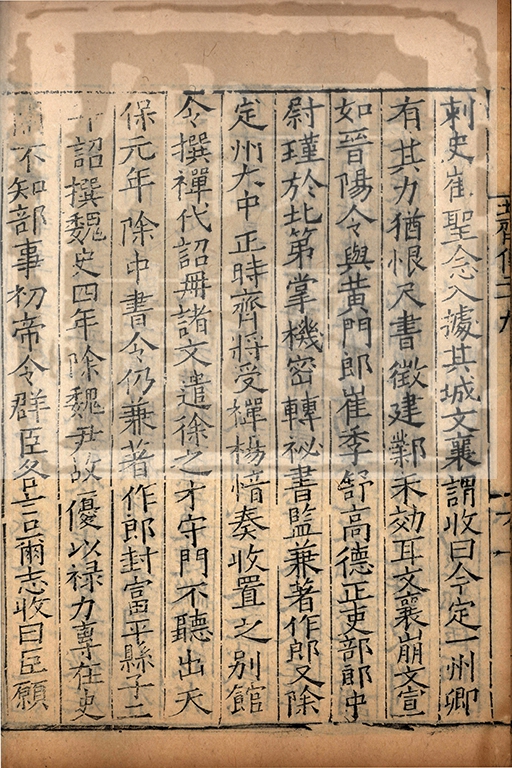 刺史崔聖念入據其城文襄謂收曰今定一州卿
有其力猶恨尺書徵建鄴未効耳文襄崩文宣
如晉陽令與黃門郎崔季舒高德正吏部郎中
尉瑾於北第掌機密轉祕書監兼著作郎又除
定州大中正時齊將受禪楊愔奏收置之别館
令撰禪代詔冊諸文遣徐之才守門不聽出天
保元年除中書令仍兼著作郎封富平縣子二
年詔撰魏史四年除魏尹故優以禄力專在史
閣不知部事初帝令群臣各言爾志收曰臣願